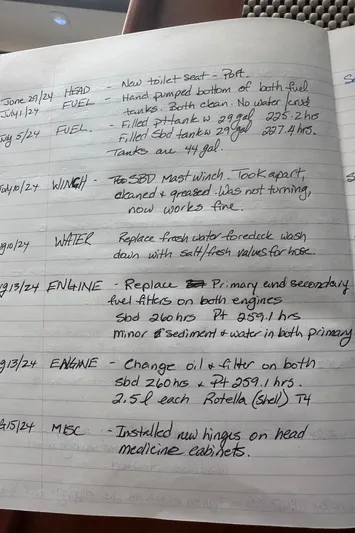 June 29/24 HEAD - New toilet seat - Port.
July 1/24 FUEL - Hand pumped bottom of both fuel
tanks. Both clean. No water/crud
July 5/24 FUEL. - Filled Pt tank w 29 gal 225.2 hrs
Filled Sbd tank w 29 gal 227.4 hrs.
Tanks are 44 gal.
July 10/24 WINCH - SBD Mast winch. Took apart,
cleaned & greased. Was not turning,
now works fine.
g 10/24 WATER Replace fresh water foredeck wash
down with salt/fresh valves for hose.
g 13/24 ENGINE - Replace Primary and secondary
fuel filters on both engines
Sbd 260 hrs Pt 259.1 hrs
minor sediment & water in both primary
g 13/24 ENGINE - Change oil & filter on both
sbd 260 hrs & Pt 259.1 hrs.
2.5 l each Rotella (Shell) T4
G 15/24 MISC - Installed new hinges on head
medicine cabinets.